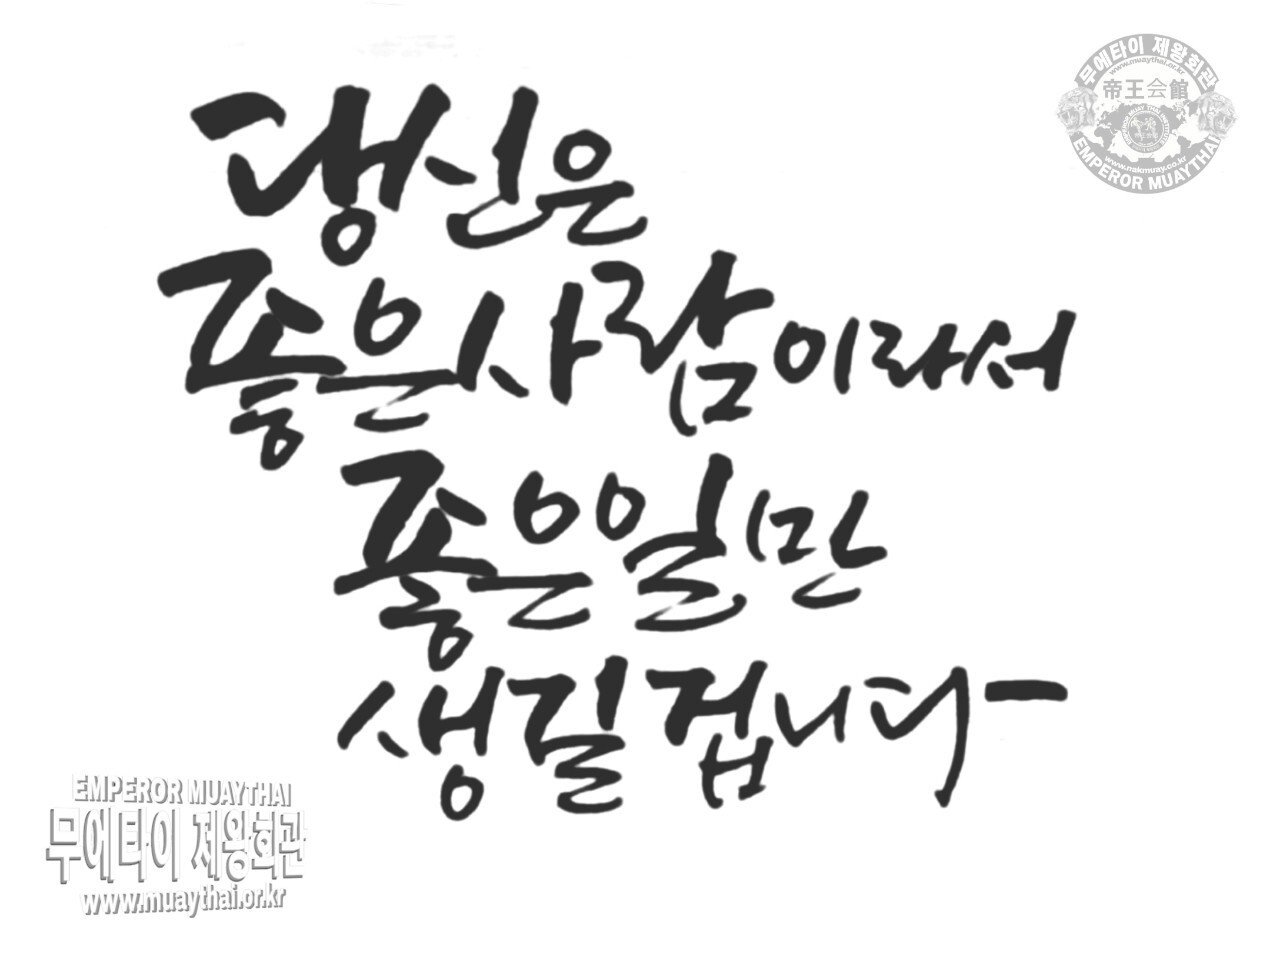 무에타이 제왕회관
www.muaythai.or.kr
帝王会館
www.nakmuay.co.kr
EMPEROR MUAYTHAI
당신은
좋은사람이라서
좋은일만
생길겁니다
EMPEROR MUAYTHAI
무에타이 제왕회관
www.muaythai.or.kr